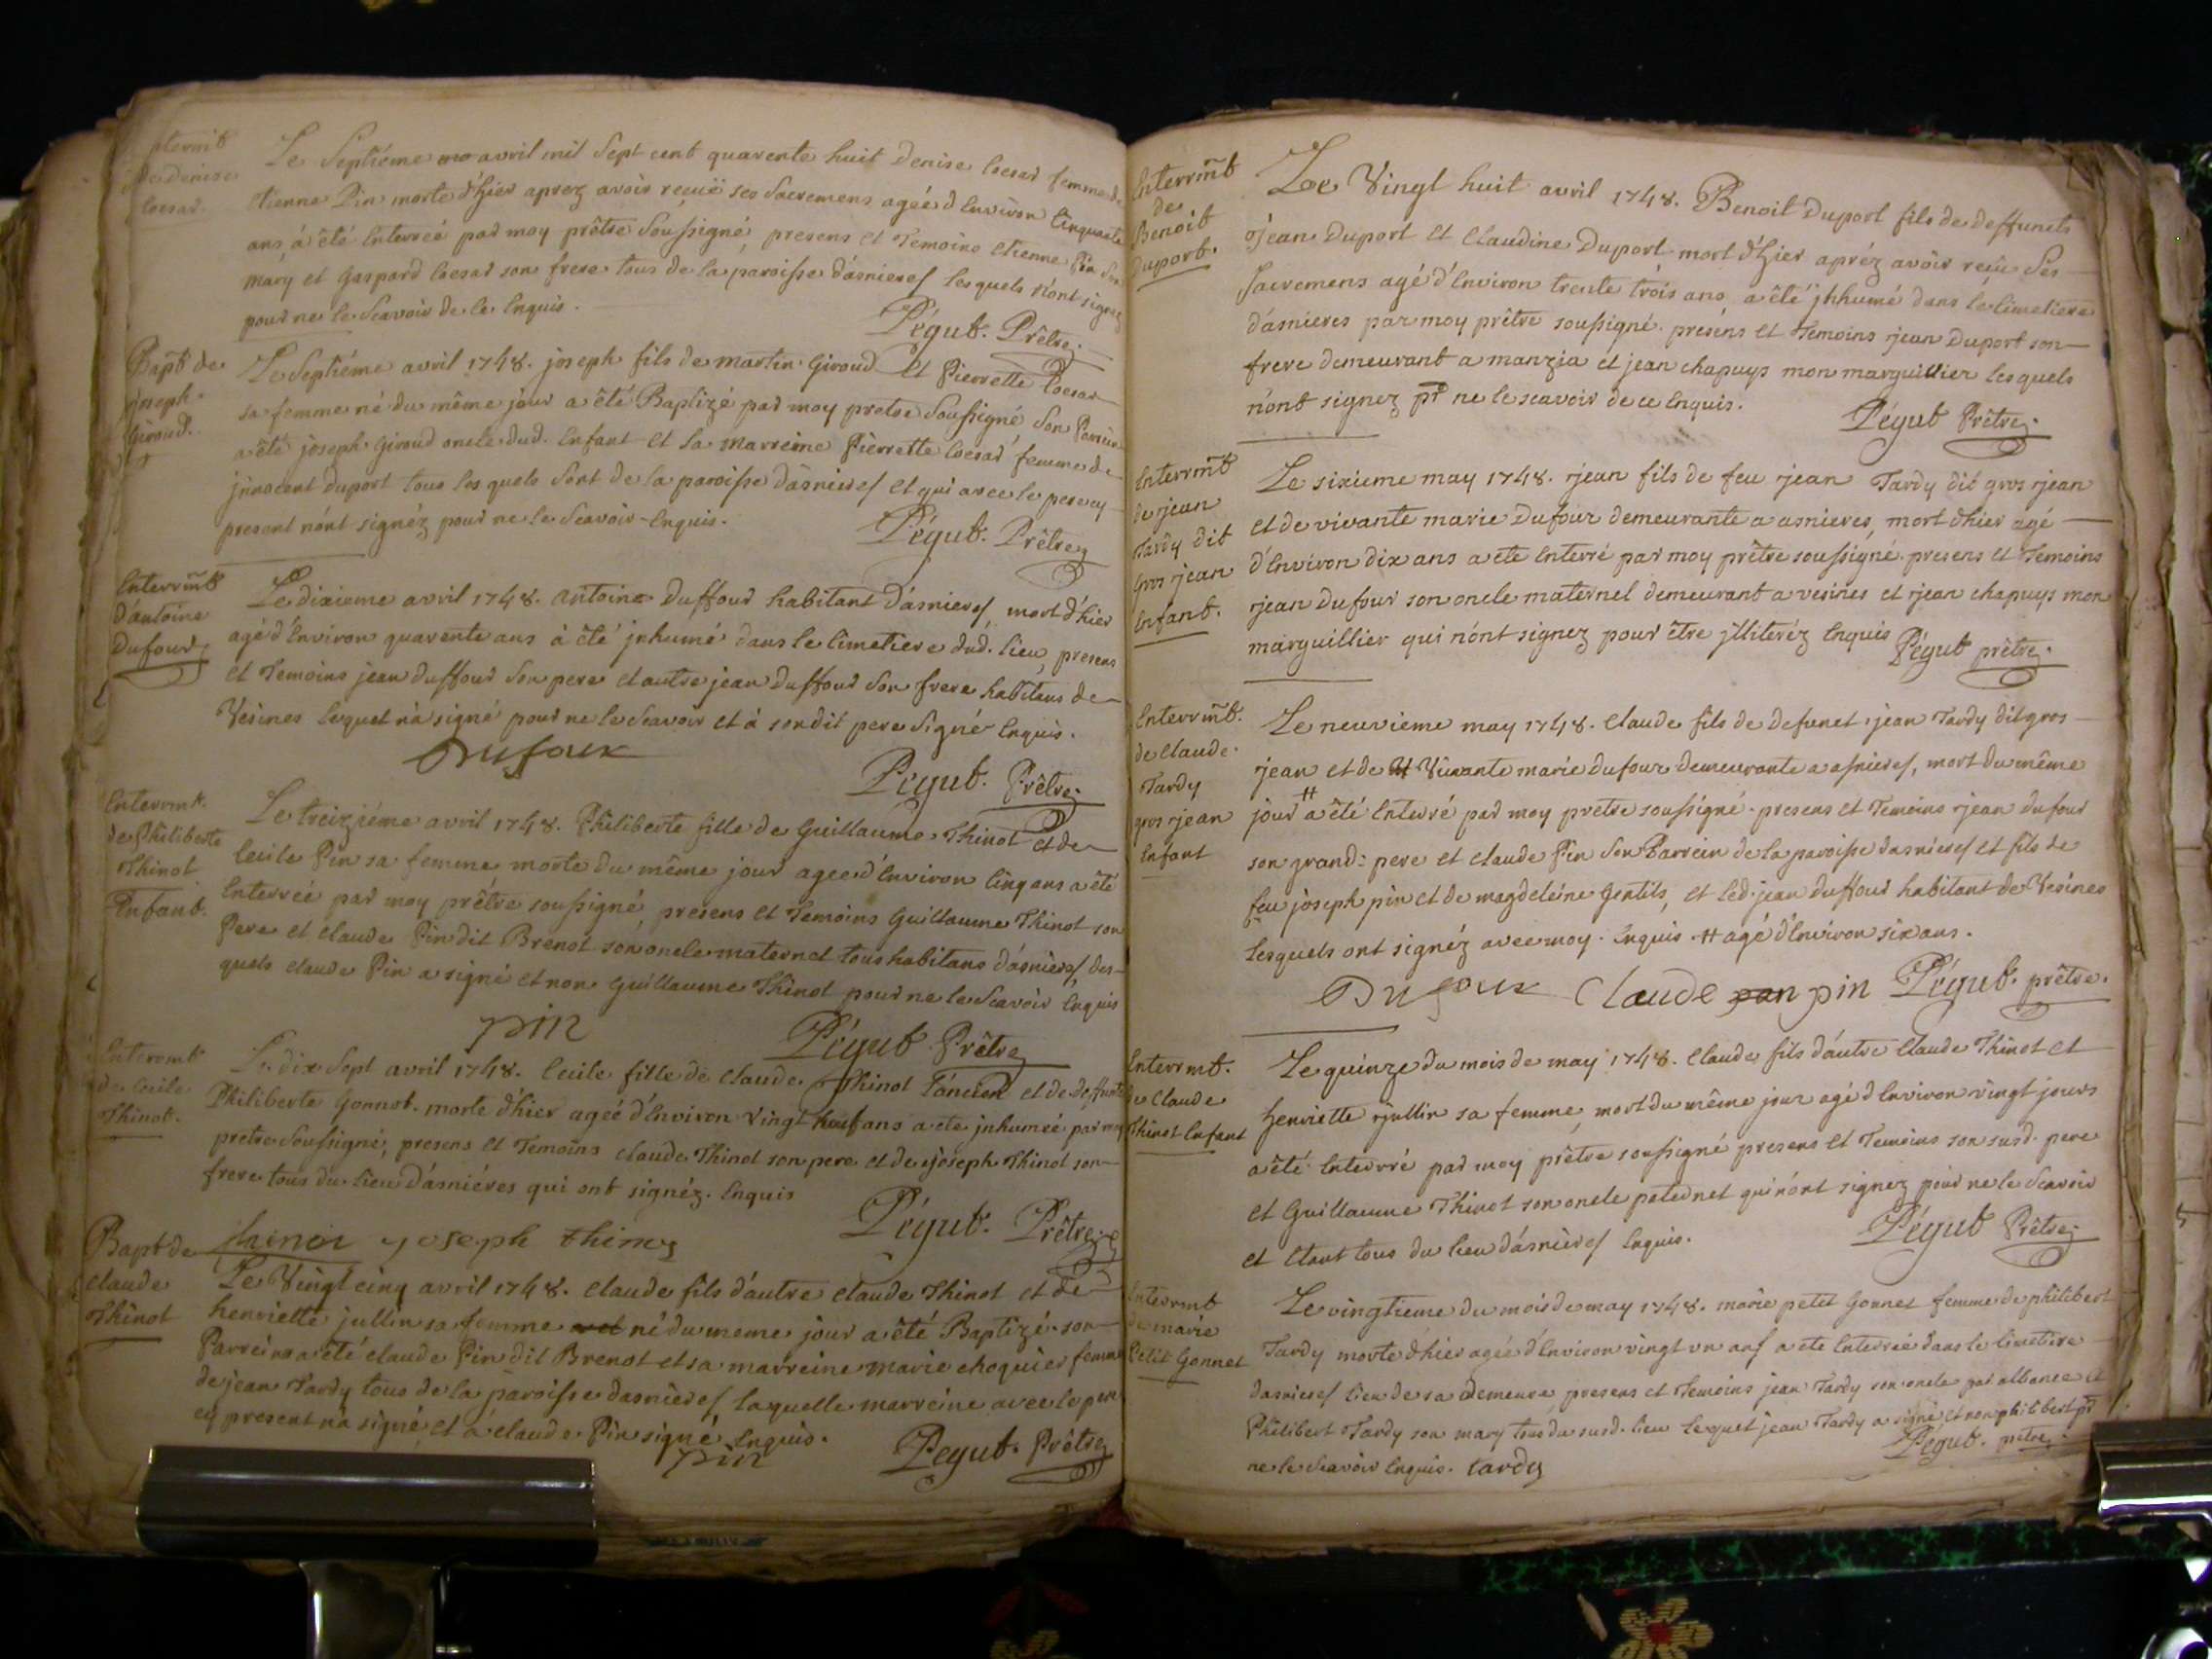 Enterrm̃t
de denise
Coesar.
Le Septiéme avril mil Sept cent quarente huit denise Coesar femme de
etienne Pin morte d'hier aprez avoir reçuë ses Sacremens agéé d'Environ Cinquante
ans, á été Enterreé par moy prêtre Soussigné, presens et Temoins etienne Pin son
mary et Gaspard Coesar son frere tous de la paroisse d'asnieres lesquels n'ont signez
pour ne le Scavoir de ce Enquis.
Pégut. Prêtre.
Bapt de
joseph
Giroud.
Le Septiéme avril 1748. joseph fils de martin Giroud et Pierrette Coesar
sa femme né du même jour a été Baptizé par moy pretre Soussigné Son Parrein
a été joseph Giroud oncle dud. Enfant et sa marreine Pierrette Coesar femme de
jnnocent duport tous lesquels sont de la paroisse d'asnieres et qui avec le pere cy
present n'ont signéz pour ne le Scavoir Enquis.
Pégut. Prêtre
Enterrm̃t
d'antoine
Dufour
Le dixieme avril 1748. antoine Duffour habitant d'asnieres, mort d'hier
agé d'Environ quarente ans à été jnhumé dans le Cimetiere dud. lieu, presens
et Temoins jean Duffour Son pere et autre jean Duffour Son frere habitans de
Vesines lequel n'a signé pour ne le Scavoir et à sondit pere Signé Enquis.
Dufour
Pégut. Prêtre.
Enterrmt.
de Philiberte
Thinot
Enfant.
Le treiziéme avril 1748. Philiberte fille de Guillaume Thinot et de
Cecile Pin sa femme, morte du même jour ageé d'Environ Cinq ans a été
Enterreé par moy prêtre soussigné, presens et Temoins Guillaume Thinot son
Pere et Claude Pin dit Brenot son oncle maternel tous habitans d'asnieres, des-
quels Claude Pin a signé et non Guillaume Thinot pour ne le Scavoir Enquis
pin
Pégut Prêtre
Enterrmt
de Cecile
Thinot.
Le dix Sept avril 1748. Cecile fille de Claude Thinot l'áncien et de deffunte
Philiberte Gonnot. morte d'hier ageé d'Environ Vingt huit ans a ete jnhumeé par moy
pretre Soussigné, presens et Temoins Claude Thinot son pere et de joseph Thinot son
frere tous du lieu d'asniéres qui ont signéz. Enquis
Pégut. Prêtre.
thinot joseph thinot
Bapt de
Claude
Thinot
Le Vingt cinq avril 1748. Claude fils d'autre Claude Thinot et de
henriette jullin sa femme né du meme jour a été Baptizé son
Parrein a été Claude Pin dit Brenot et sa marreine marie choquier femme
de jean Tardy tous de la paroisse dasnieres laquelle marreine avec le pere
cy present n'a signé et á Claude Pin signé Enquis.
pin
Pegut. Prêtre
Enterrm̃t
de
Benoit
Duport.
Le Vingt huit avril 1748. Benoit Duport fils de deffuncts
jean Duport et Claudine Duport mort d'hier apréz avoir reçu Ses
Sacremens agé d'Environ trente trois ans a été jhhumé dans le Cimetiere
d'asnieres par moy prêtre soussigné. presens et Temoins jean Duport son
frere demeurant a manzia et jean chapuys mon marguillier lesquels
n'ont signez pr ne le scavoir de ce Enquis.
Pégut Prêtre.
Enterrm̃t
de jean
Tardy dit
Gros jean
Enfant.
Le sixieme may 1748. jean fils de feu jean Tardy dit gros jean
et de vivante marie Dufour demeurante a asnieres, mort d'hier agé
d'Environ dix ans a ete Enterré par moy prêtre soussigné. presens et Temoins
jean Dufour son oncle maternel demeurant a vesines et jean chapuys mon
marguillier qui n'ónt signez pour être jlliteréz Enquis
Pégut prêtre.
Enterrm̃t.
de Claude
Tardy
gros jean
Enfant
Le neuvieme may 1748. Claude fils de defunct jean Tardy dit gros
jean et de Vivante marie Dufour demeurante a asnieres, mort du même
jour # a été Enterré par moy pretre soussigné. presens et Temoins jean dufour
son grand-pere et Claude Pin Son Parrein de la paroisse dasnieres et fils de
feu joseph pin et de magdeleine Gentils, et led. jean Duffour habitant de Vesines
lesquels ont signéz avec moy. Enquis. # agé d'Environ six ans.
Dufour Claude pan pin Pégut. prêtre.
Enterrmt.
de Claude
Thinot Enfant
Le quinze du mois de may 1748. Claude fils d'autre Claude Thinot et
henriette jullin sa femme, mort du même jour agé d'Environ vingt jours
a été Enterré par moy prêtre soussigné presens et Temoins son susd. pere
et Guillaume Thinot son oncle paternel qui n'ónt signez pour ne le Scavoir
et étant tous du lieu d'asnieres Enquis.
Pégut Prêtre
Enterrmt
de marie
Petit Gonnet
Le vingtieme du mois de may 1748. marie petit Gonnet femme de philibert
Tardy morte d'hier ageé d'Environ vingt un ans a ete Enterreé dans le Cimetiere
dasnieres lieu de sa demeure, presens et Temoins jean Tardy son oncle par alliance et
Philibert Tardy son mary tous du susd. lieu lequel jean Tardy a signé et non philibert pr
ne le Scavoir Enquis. tardy
Pégut. pretre.